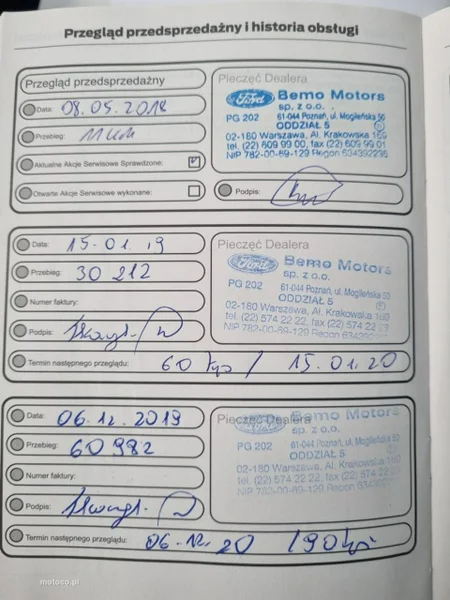 Przegląd przedsprzedażny i historia obsługi
Przegląd przedsprzedażny
Data: 08.05.2018
Przebieg: 11 km
Aktualne Akcje Serwisowe Sprawdzone:
Otwarte Akcje Serwisowe wykonane:
Pieczęć Dealera
Ford Bemo Motors
sp. z o.o.
PG 202 61-044 Poznań, ul. Mogileńska 50
ODDZIAŁ 5
02-180 Warszawa, Al. Krakowska
tel. (22) 609 99 00, fax (22) 609 99 01
NIP 782-00-69-129 Regon 634392235
Podpis:
Data: 15-01.19
Przebieg: 30 212
Numer faktury:
Podpis:
Termin następnego przeglądu: 60 tys / 15.01.20
Pieczęć Dealera
Ford Bemo Motors
sp. z o.o.
PG 202 61-044 Poznań, ul. Mogileńska 50
ODDZIAŁ 5
02-180 Warszawa, Al. Krakowska
tel. (22) 574 22 22, fax (22) 574 22
NIP 782-00-69-129 Regon
Data: 06.12.2019
Przebieg: 60 982
Numer faktury:
Podpis:
Termin następnego przeglądu: 06.12.20 / 90 tys
Pieczęć Dealera
Bemo Motors
sp. z o.o.
PG 202 61-044 Poznań, ul. Mogileńska 50
ODDZIAŁ 5
02-180 Warszawa, Al. Krakowska
tel. (22) 574 22 22, fax (22) 574 22
NIP 782-00-69-129 Regon
motoco.pl